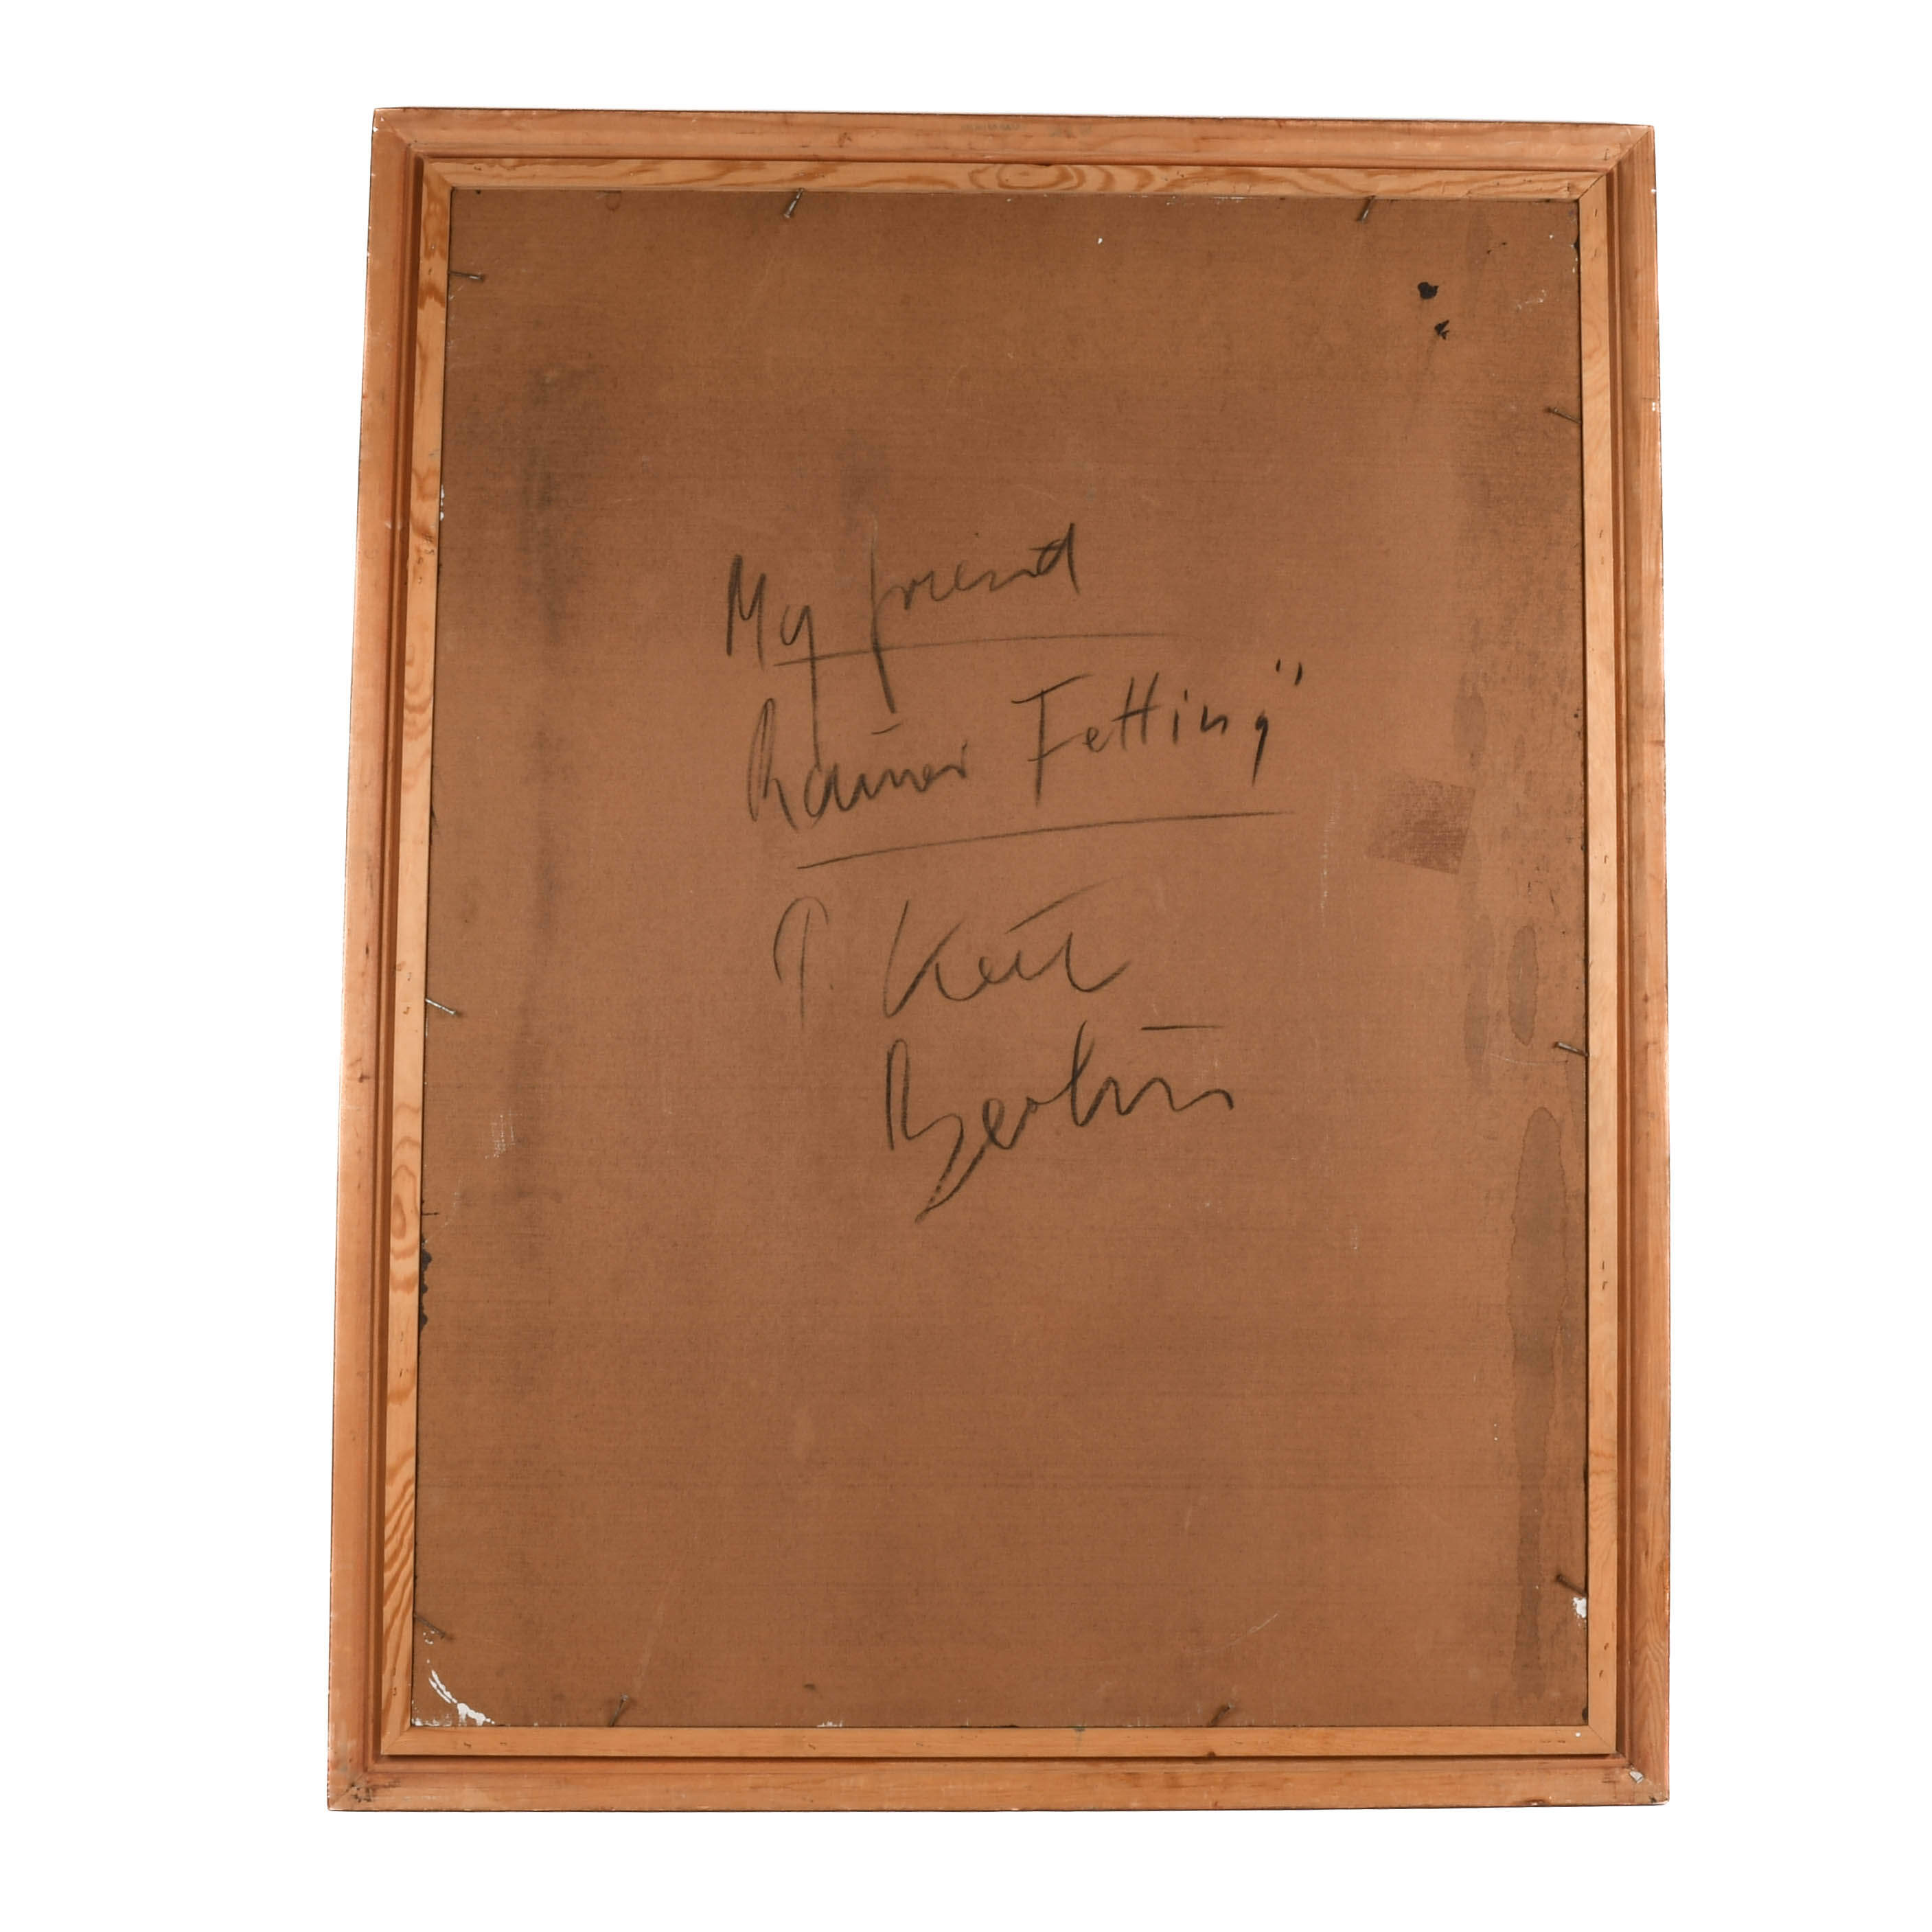 My friend
Rainer Fetting"
P. Keil
Berlin